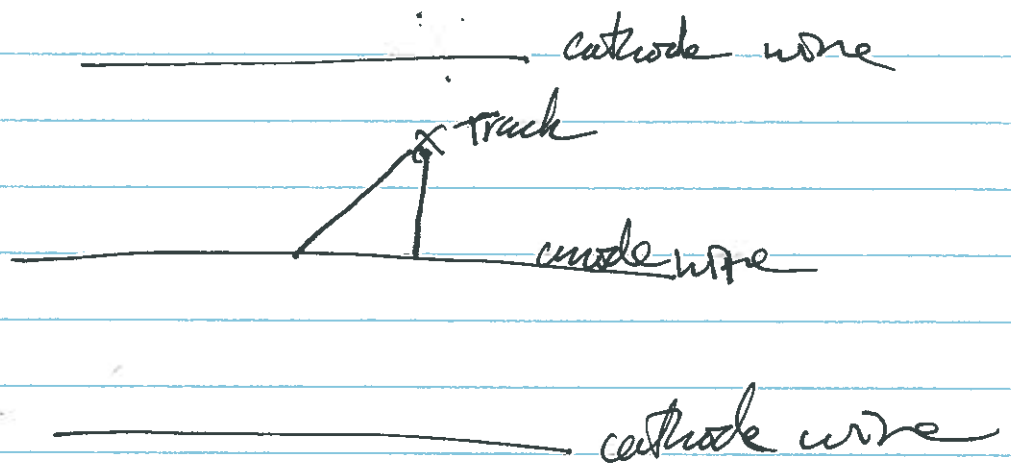 cathode wire
Track
anode wire
cathode wire